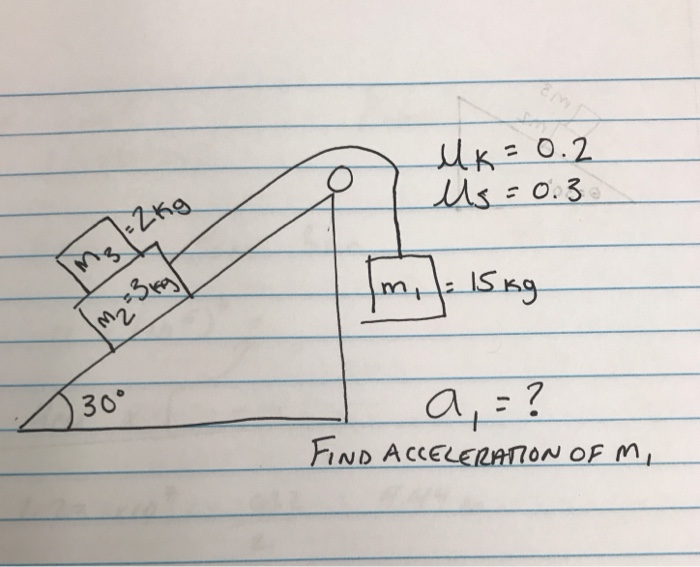 μk = 0.2
μs = 0.3
m3 = 2kg
m2 = 3kg
m1 = 15 kg
30°
a1 = ?
FIND ACCELERATION OF m1